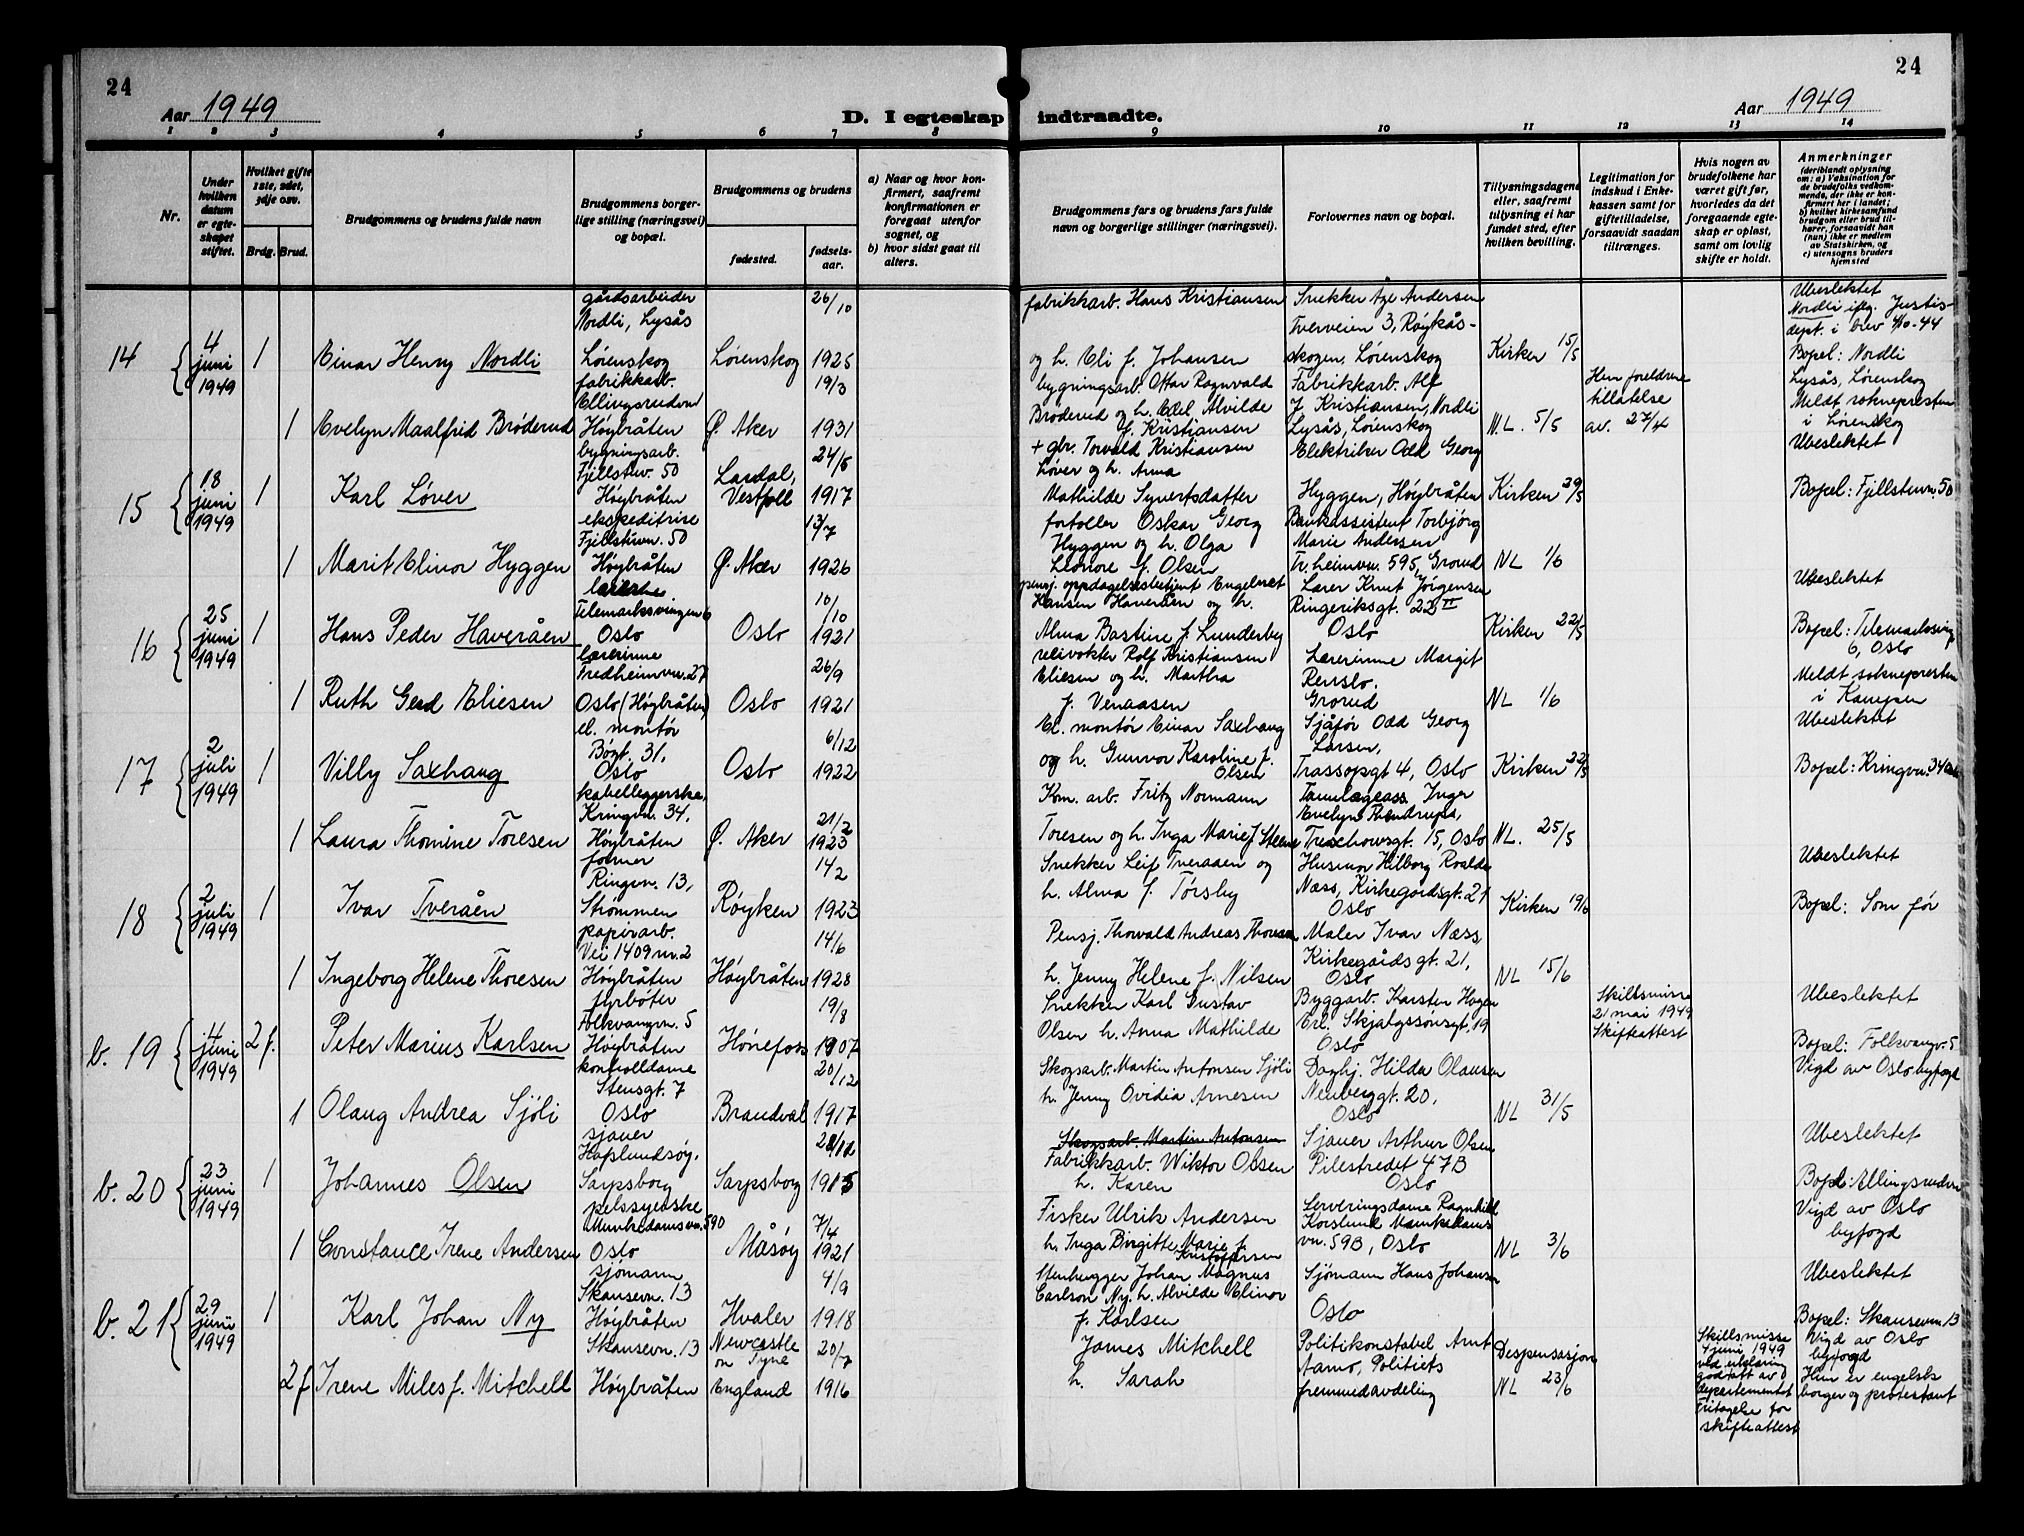 24
Aar 1949
D. I egteskap indtraadte.
Aar 1949
24
1 2 3 4 5 6 7 8 9 10 11 12 13 14
Nr.
Under hvilken datum er egteskapet stiftet.
Hvilket gifte 1ste, 2det, 3dje osv.
Brdg. Brud.
Brudgommens og brudens fulde navn
Brudgommens borgerlige stilling (næringsvei) og bopæl.
Brudgommens og brudens
fødested.
fødselsaar.
a) Naar og hvor konfirmert, saafremt konfirmationen er foregaat utenfor sognet, og
b) hvor sidst gaat til alters.
Brudgommens fars og brudens fars fulde navn og borgerlige stillinger (næringsvei).
Forlovernes navn og bopæl.
Tillysningsdagene eller, saafremt tillysning ei har fundet sted, efter hvilken bevilling.
Legitimation for indskud i Enkekassen samt for giftetilladelse, forsaavidt saadan tiltrænges.
Hvis nogen av brudefolkene har været gift før, hvorledes da det foregaaende egteskap er opløst, samt om lovlig skifte er holdt.
Anmerkninger
(deriblandt oplysning om: a) Vaksination for de brudefolks vedkommende, der ikke er konfirmert her i landet;
b) hvilket kirkesamfund brudgom eller brud tilhører, forsaavidt han (hun) ikke er medlem av Statskirken, og
c) utensogns bruders hjemsted
14
4 juni 1949
1
Einar Henry Nordli
gårdsarbeider
Nordli, Lysås
Lørenskog
Lørenskog
26/10
1925
fabrikkarb. Hans Kristiansen
og h. Eli f. Johansen
Snekker Age Andersen
Tverveien 3, Røykås-
skogen, Lørenskog
Kirken 15/5
Ubeslektet
Nordli iflg. Justis-
dept. i brev 4/10-44
Bopel: Nordli
Lysås, Lørenskog
Meldt sokneprester
i Lørenskog
1
Evelyn Maalfrid Brøderud
fabrikkarb.
Ellingsrudvn
Høybråten
Ø. Aker
19/3
1931
bygningsarb. Ottar Ragnvald
Brøderud og h. Edel Alvilde
f. Kristiansen
Fabrikkarb. Alf
J. Kristiansen, Nordli
Lysås, Lørenskog
N.L. 5/5
Hen foreldrene
tillatelse
av. 27/4
15
18 juni 1949
1
Karl Løver
bygningsarb.
Fjellstuv. 50
Høybråten
Lardal,
Vestfoll
24/5
1917
+ gbr. Torvald Kristiansen
Løver og h. Anna
Mathilde Synertsdatter
Elektriker Odd Georg
Hyggen, Høybråten
Kirken 29/5
Ubeslektet
Bopel: Fjellstuvn. 50
1
Marit Elinor Hyggen
ekspeditrise
Fjellstuvn. 50
Høybråten
Ø. Aker
13/7
1926
fortoller Oskar Georg
Hyggen og h. Olga
Leonore f. Olsen
Bankassistent Torbjørg
Marie Andersen
Tr.heimvn. 595, Grorud
NL 1/6
16
25 juni 1949
1
Hans Peder Haveråen
Telemarksvingen 6
Oslo
Oslo
10/10
1921
pensj. oppdagelsesbetjent Engelbret
Hansen Haveråen og h.
Alma Bastine f. Lunderby
Lærer Knut Jørgensen
Ringeriksgt. 22 II
Oslo
Kirken 22/5
Ubeslektet
Bopel: Telemarksving
6, Oslo
Meldt sokneprester
i Kampen
1
Ruth Gerd Eliesen
Lærerinne
Fredheimvn. 27
Oslo (Høybråten)
Oslo
26/9
1921
relivokter Rolf Kristiansen
Eliesen og h. Martha
f. Venaasen
Lærerinne Margit
Renslo.
Grorud
NL 1/6
17
2 juli 1949
1
Villy Saxhaug
el. montør
Bøgt. 31,
Oslo
Oslo
6/12
1922
El. montør Einar Saxhaug
og h. Gunvor Karoline f.
Olsen
Sjåfør Odd Georg
Larsen,
Trassopsgt 4, Oslo
Kirken 22/5
Ubeslektet
Bopel: Kringvn. 34
1
Laura Thomine Toresen
kabelleggerske,
Kringvn. 34,
Høybråten
Ø. Aker
21/2
1923
Kom. arb. Fritz Normann
Toresen og h. Inga Marie f Steene
Tannlægeass. Inger
Evelyn Thendrups,
Treschowsgt. 15, Oslo
NL. 25/5
18
2 juli 1949
1
Ivar Tveråen
former
Ringvn. 13,
Strømmen
Røyken
14/2
1923
Snekker Leif Tveraaen og
h. Alma f. Tørsby
Husmor Hilborg Roalda
Næss, Kirkegårdsgt. 21
Oslo
Kirken 19/6
Ubeslektet
Bopel: Som før
1
Ingeborg Helene Thoresen
papirarb.
Vei 1409 nr. 2
Høybråten
Høybråten
14/6
1928
Pensj. Thorvald Andreas Thoresen
h. Jenny Helene f. Nilsen
Maler Ivar Næss
Kirkegårdsgt. 21,
Oslo
NL 15/6
b. 19
4 juni 1949
2 f.
Peter Marius Karlsen
fyrbøter
Folkvangvn. 5
Høybråten
Hønefoss
19/8
1907
Snekker Karl Gustav
Olsen h. Anna Mathilde
Byggarb. Karsten Hagen
Erl. Skjalgssønsgt, 19
Oslo
Skillsmisse
21 mai 1949
Skifteattest
Ubeslektet
Bopel: Folkvangv. 5
Vigd av Oslo byfogd
1
Olaug Andrea Sjøli
kontrolldame
Stensgt. 7
Oslo
Brandval
20/12
1917
Skogsarb. Martin Antonsen Sjøli
h. Jenny Ovidia Arnesen
Daghj. Hilda Olausen
Neuberggt. 20,
Oslo
NL 31/5
b. 20
23 juni 1949
1
Johannes Olsen
sjauer
Hafslundsøy,
Sarpsborg
Sarpsborg
Skogsarb. Martin Antonsen
Fabrikkarb. Wiktor Olsen
h. Karen
Sjauer Arthur Olsen
Pilestredet 47B
Oslo
Ubeslektet
Bopel: Ellingsrudvn
Vigd av Oslo
byfogd
1
Constance Irene Andersen
pelssyerske
Munkedamsvn. 59B
Oslo
Måsøy
7/4
1921
Fisker Ulrik Andersen
h. Inga Birgitte Marie f.
Kristoffersen
Serveringsdame Ragnhild
Korslund Munkedams
vn. 59B, Oslo
NL 3/6
b. 21
29 juni 1949
1
Karl Johan Ny
sjømann
Skansevn. 13
Høybråten
Hvaler
4/9
1918
Stenhugger Johan Magnus
Carlson Ny. h. Alvilde Elinor
f. Karlsen
Sjømann Hans Johansen
Oslo
Ubeslektet
Bopel: Skansevn 13
Vigd av Oslo
byfogd
Hun er engelsk
borger og protestant
2 f
Irene Miles f. Mitchell
Skansevn. 13
Høybråten
Newcastle
on Tyne
England
20/7
1916
James Mitchell
h. Sarah
Politikonstabel Arnt
Aamo, Politiets
fremmedavdeling
Despensasjon
NL 23/6
Skillsmisse
4 juni 1949
ved erklæring
godtatt av
departementet
Fritagelse for
skifteattest